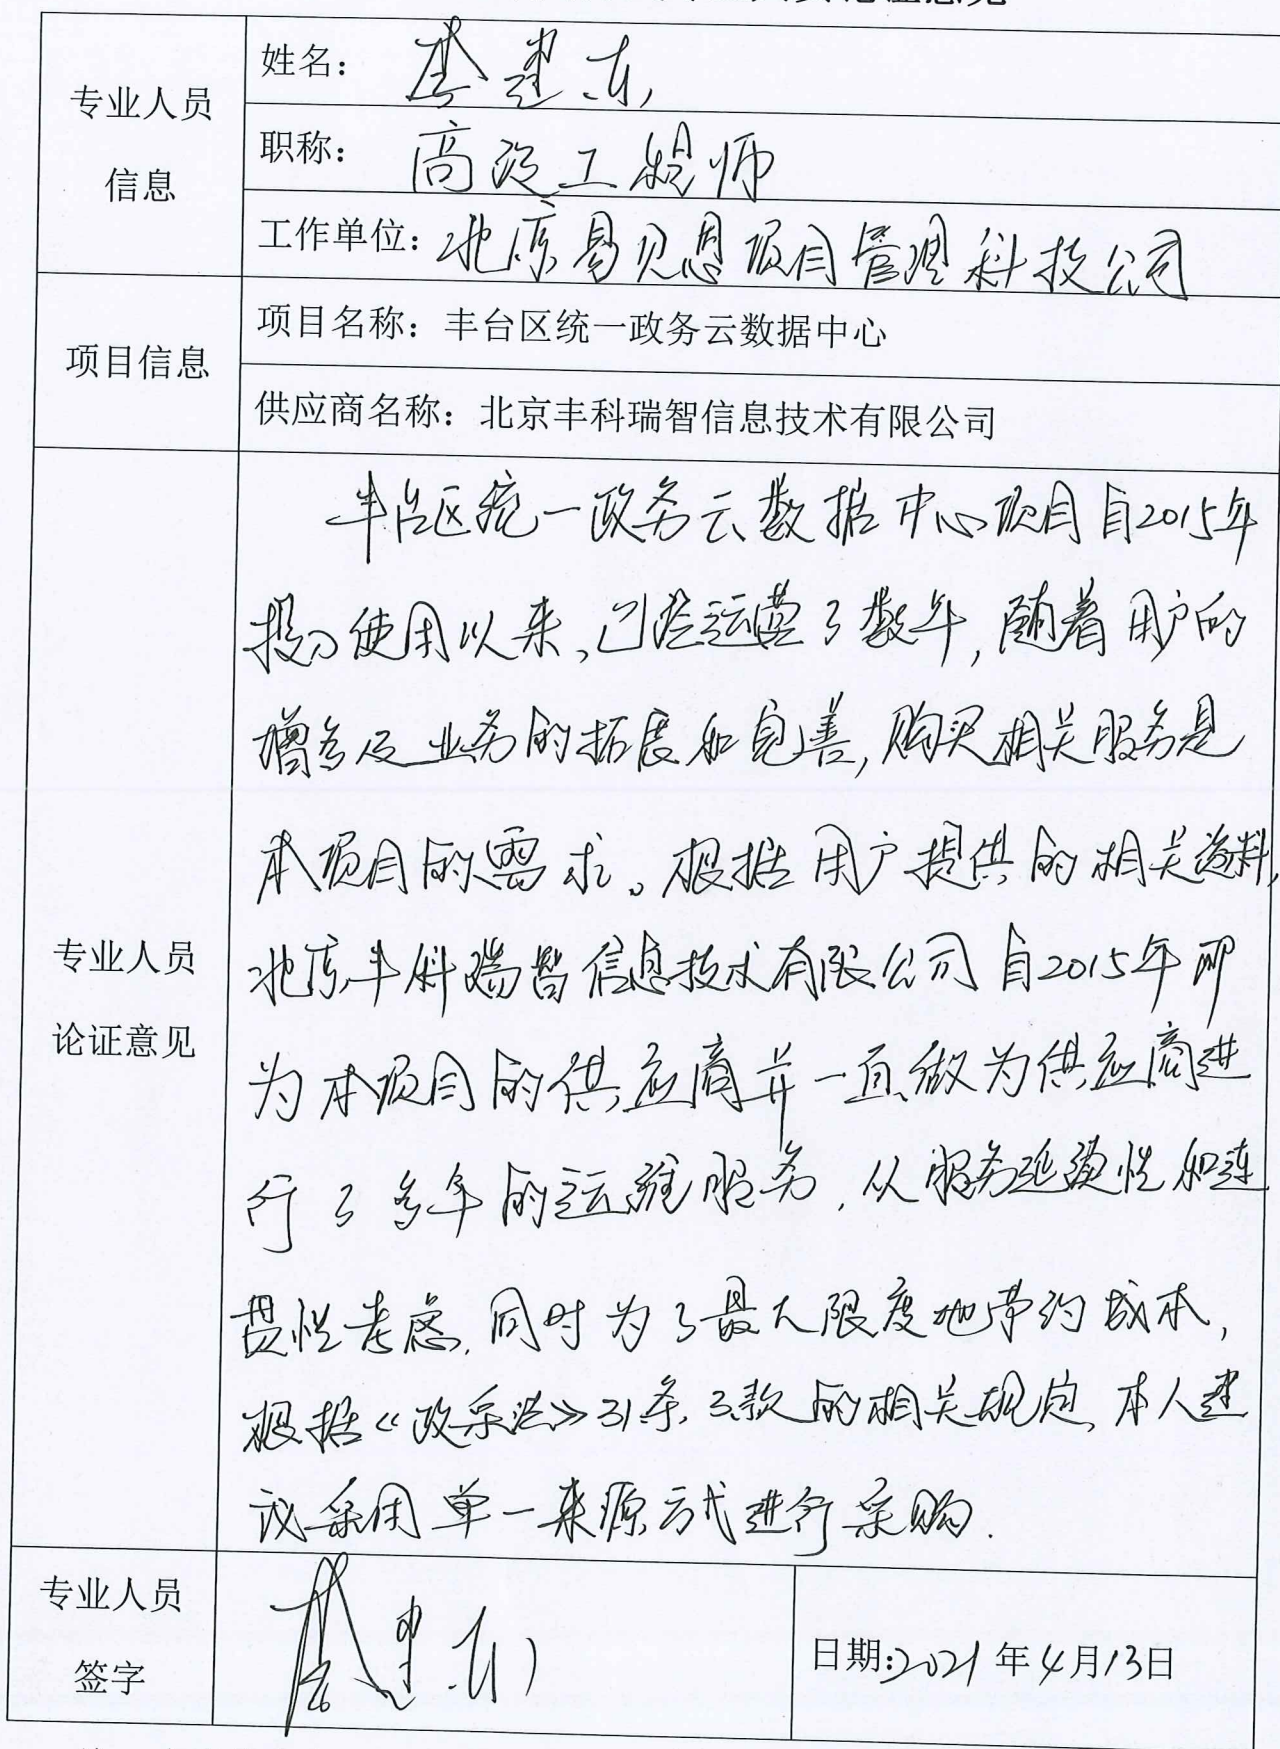 专业人员
信息
姓名：李建东
职称：高级工程师
工作单位：北京易见恩项目管理科技公司
项目信息
项目名称：丰台区统一政务云数据中心
供应商名称：北京丰科瑞智信息技术有限公司
专业人员
论证意见
丰台区统一政务云数据中心项目自2015年
投入使用以来，已经运营了数年，随着用户的
增多及业务的拓展和完善，购买相关服务是
本项目的需求。根据用户提供的相关资料，
北京丰科瑞智信息技术有限公司自2015年即
为本项目的供应商并一直做为供应商进
行了多年的运维服务，从服务延续性和连
贯性考虑，同时为了最大限度地节约成本，
根据《政采法》31条，3款的相关规定，本人建
议采用单一来源方式进行采购.
专业人员
签字
日期:2021年4月13日